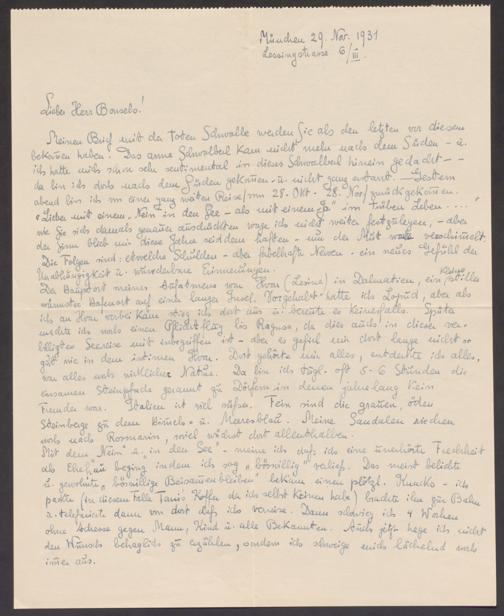 München 29. Nov. 1931
Lessingstrasse 6/III.
Lieber Herr Bonsels!
Meinen Brief mit der toten Schwalbe werden Sie als den letzten vor diesem
bekommen haben. Das arme Schwalberl kam nicht mehr nach dem Süden - u.
ich hatte mich schon sehr sentimental in dieses Schwalberl hinein gedacht - -
da bin ich doch nach dem Süden gekommen - u. nicht ganz erstarrt. Gestern
abend bin ich von einer ganz weiten Reise / vom 25. Okt - 28. Nov / zurückgekommen.
"Lieber mit einem Nein in den See - als mit einem Ja im trüben Leben . . . ."
wie Sie sich damals genau ausdrückten wage ich nicht weiter festzulegen, - aber
der Sinn blieb mir diese Jahre seitdem haften - nur der Mut war verschimmelt.
Die Folgen sind: etwelche Schulden - aber fabelhafte Nerven - ein neues Gefühl der
Unabhängigkeit u. wunderbare Erinnerungen.
Der Hauptort meines Aufatmens war Hvar (Lesina) in Dalmatien, ein kleines stilles
wärmster Hafenort auf einer langen Insel. Vorgehabt hatte ich Lopud, aber als
ich an Hvar vorbei kam stieg ich dort aus u. bereute es keinesfalls. Später
machte ich noch einen Pflichtflug bis Ragusa, da dies auch in dieser ver-
billigten Seereise mit inbegriffen ist - aber es gefiel mir dort lange nicht so
gut wie in dem intimen Hvar. Dort gehörte mir alles, entdeckte ich alles,
war alles noch wirklicher Natur. Da bin ich tägl. oft 5 - 6 Stunden die
einsamen Steinpfade gerannt zu Dörfern in denen jahrelang kein
Fremder war. Italien ist viel süßer. Fein sind die grauen, öden
Steinberge zu dem Himmels- u. Meeresblau. Meine Sandalen riechen
noch nach Rosmarin, soviel wächst dort allenthalben.
Mit dem "Nein" u. "in den See" - meine ich daß ich eine unerhörte Frechheit
als Ehefrau beging indem ich weg "böswillig" verließ. Das meist beliebte
u. gewohnte "böswillige Beisammenbleiben" bekam einen plötzl. Knacks - ich
packte (in diesem Falle Janis Koffer da ich selbst keinen habe) radelte ihn zur Bahn
u. telefonierte dann von dort daß ich verreise. Dann schwieg ich 4 Wochen
ohne Adresse gegen Mann, Kind u. alle Bekannten. Auch jetzt hege ich nicht
den Wunsch behaglich zu erzählen, sondern ich schweige mich lächelnd nach
innen aus.